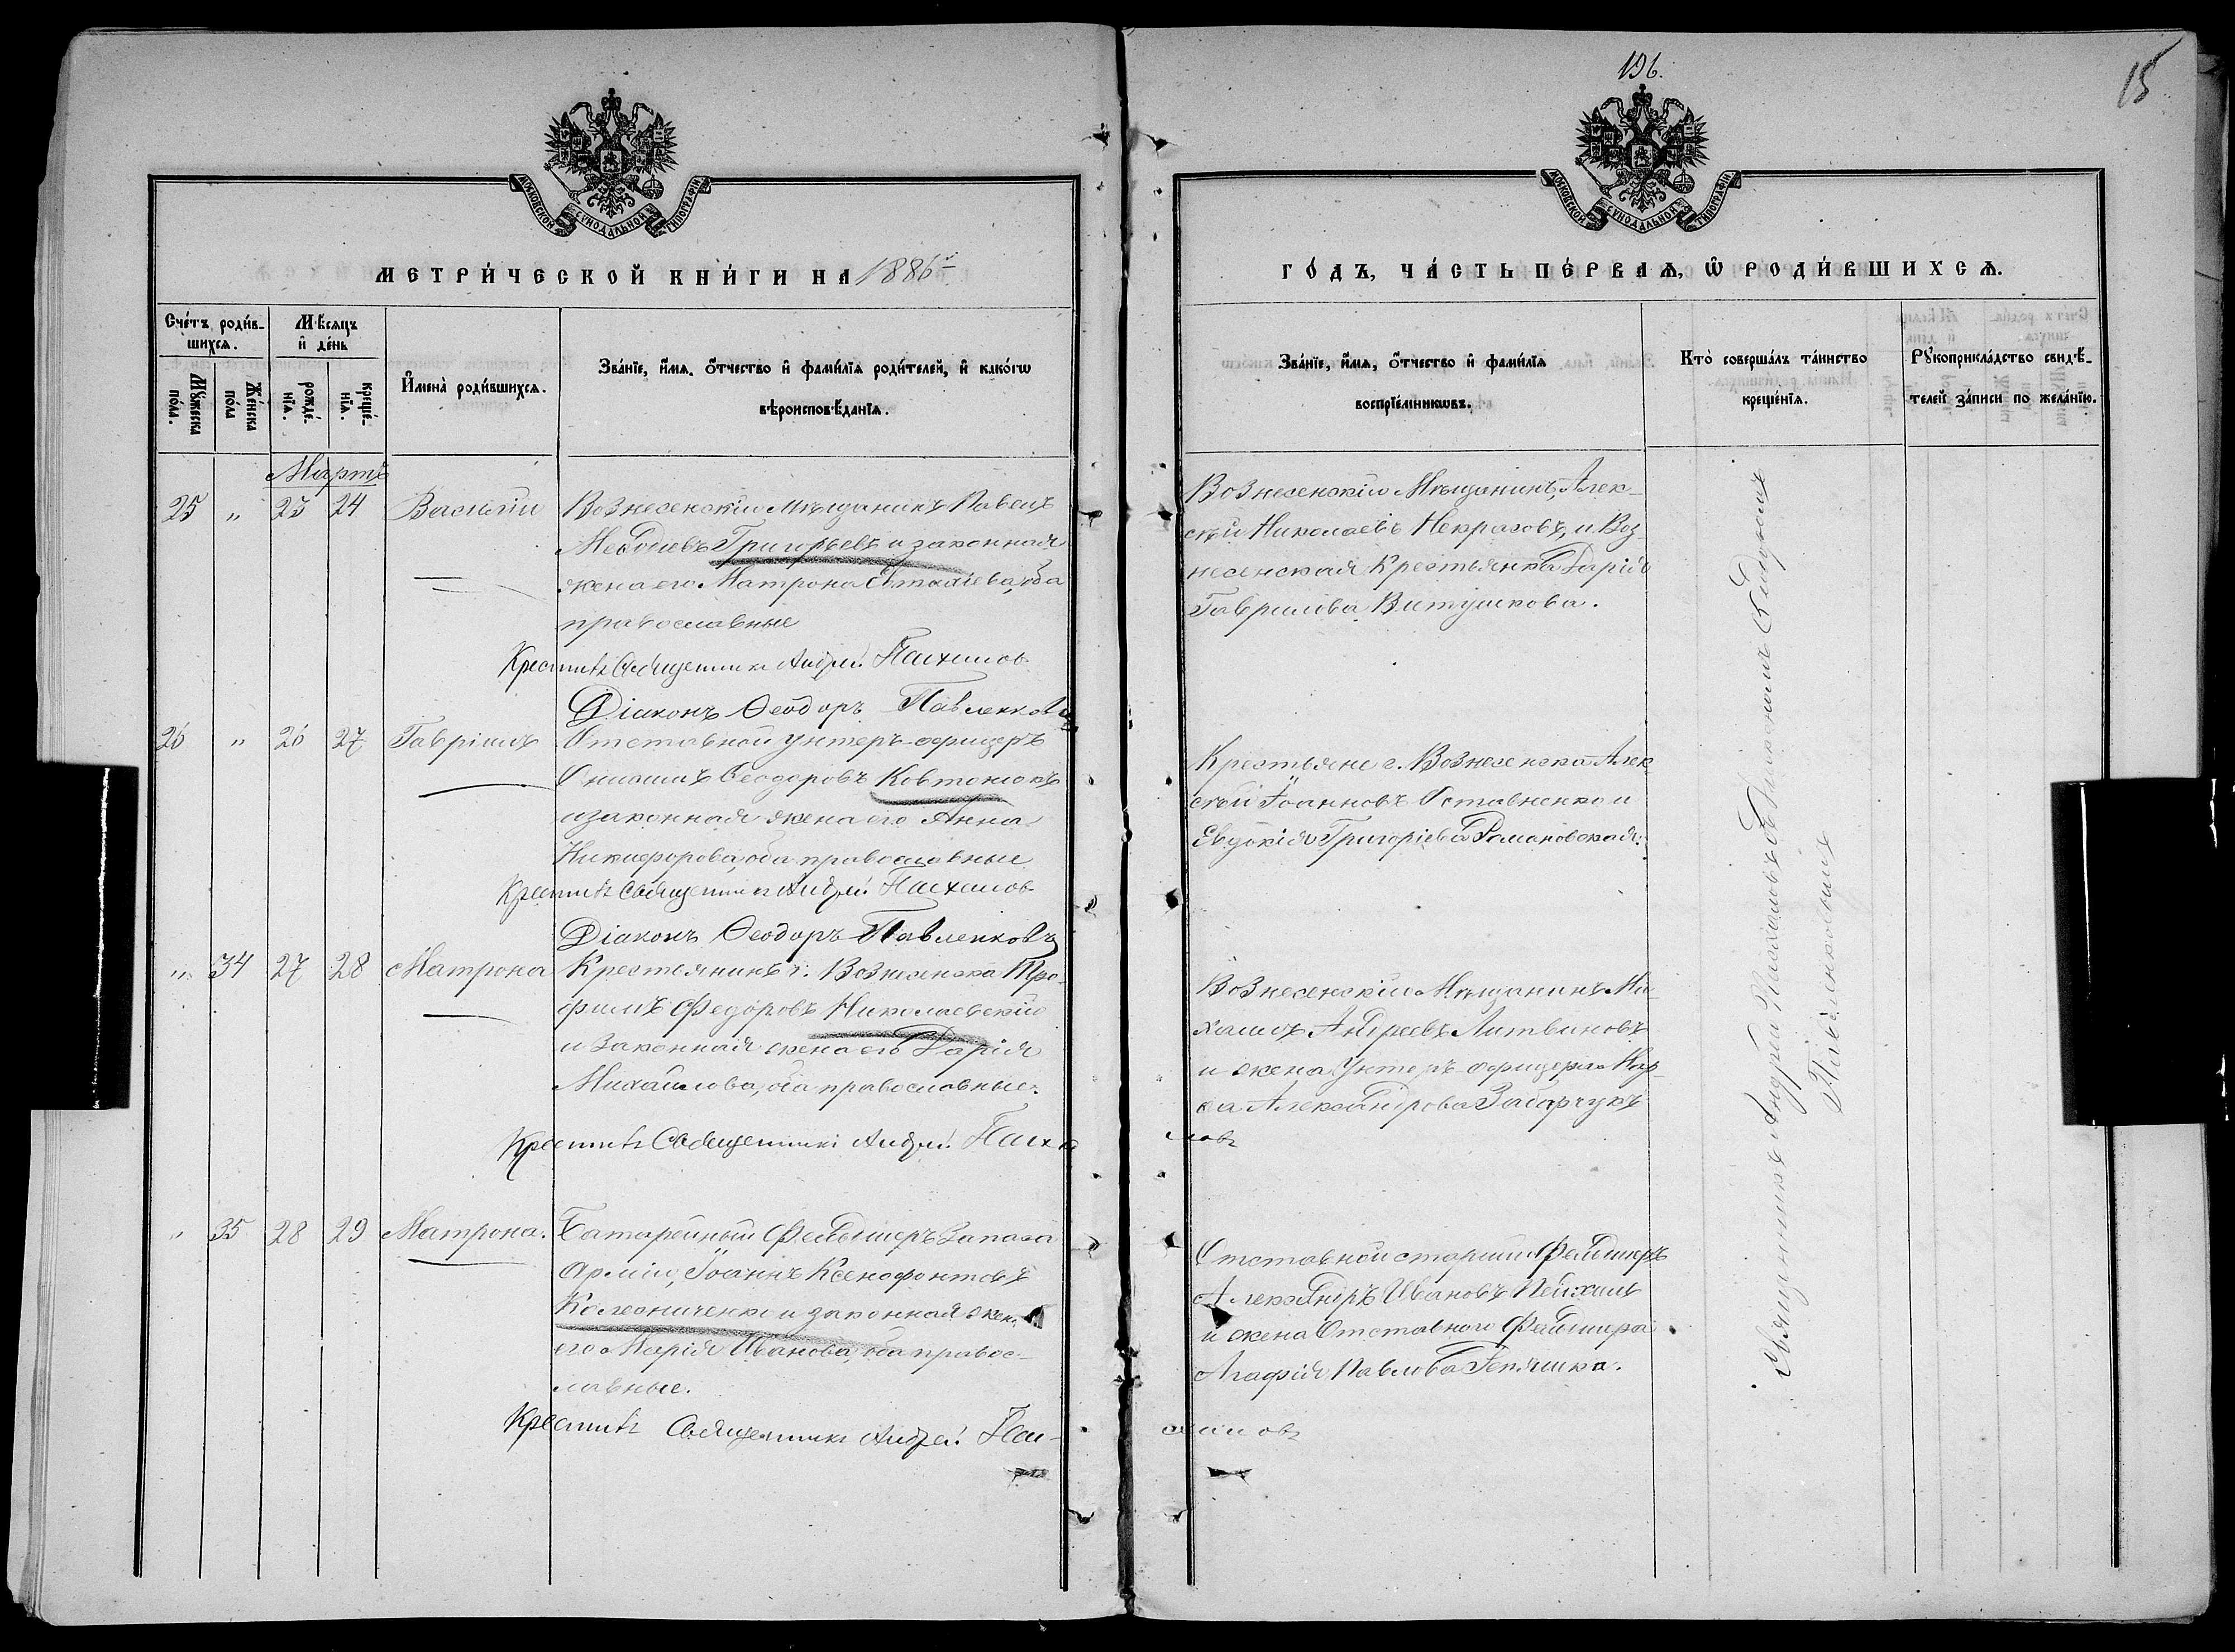 196.
15
МОСКОВСКОЙ СѴНОДАЛЬНОЙ ТИПОГРАФІИ
МОСКОВСКОЙ СѴНОДАЛЬНОЙ ТИПОГРАФІИ
МЕТРИ́ЧЕСКОЙ КНИ́ГИ НА 1886й
ГО́ДЪ, ЧА́СТЬ ПЕ́РВАѦ, Ѿ РОДИ́ВШИХСѦ.
Сче́тъ роди́в-
шихсѧ.
Мꙋ́жеска по́ла.
Же́нска по́ла
Мѣ́сѧцъ
и҆ де́нь
рожде́-
нїѧ.
креще́-
нїѧ.
И҆мена̀ роди́вшихсѧ.
Зва́нїе, и҆́мѧ, ѻ҆́тчество и҆ фами́лїѧ роди́телей, и҆ како́гѡ
вѣроисповѣ́данїѧ.
Зва́нїе, и҆́мѧ, ѻ҆́тчество и҆ фами́лїѧ
воспрїе́мникѡвъ.
Кто̀ соверша́лъ та́инство
креще́нїѧ.
Рꙋкоприкла́дство свидѣ́-
телей за́писи по жела́нїю.
Мартъ
25 " 23 24 Василій Вознесенскій Мѣщанинъ Павелъ
Меѳодіевъ Григорьевъ и законная
жена его Матрона Евтихіева, оба
православные
Крестилъ Священникъ Андрей Паихимов
Діаконъ Ѳеодоръ Павленковъ
Вознесенскій Мѣщанинъ, Алек-
сѣй Николаевъ Некрасовъ, и Воз-
несенская Крестьянка Дарія
Гаврилова Витушкова.
26 " 26 27 Гавріилъ Отставной унтеръ-офицеръ
Ѳеодоровъ Ковтонюкъ
и законная жена его Анна
Никифорова, оба православные
Крестилъ Священникъ Андрей Паихимов
Діаконъ Ѳеодоръ Павленковъ
Крестьяне г. Вознесенска Алек
сѣй Іоанновъ Оставненко и
Евдокія Григоріева Романовская.
" 34 27 28 Матрона Крестьянинъ г. Вознесенска Тро-
фимъ Федоровъ Николаевскій
и законная жена его Дарія
Михайлова, оба православные.
Крестилъ Священникъ Андрей Паихи
мовъ
Вознесенскій Мѣщанинъ Ми-
хаилъ Андреевъ Литвиновъ
и жена Унтеръ-офицера Мар-
ѳа Александрова Захарчукъ
" 35 28 29 Матрона. Батарейный Фельдшеръ Запаса
Арміи, Іоаннъ Ксенофонтовъ
Колесниченко и законная жена
его Марія Иванова, оба правос-
лавные.
Крестилъ Священникъ Андрей Паи-
химовъ
Отставной старшій Фельдшеръ
Александръ Ивановъ
и жена Отставного Фельдшера
Агафія Павлова
Священникъ Андрей Паихимовъ съ Діакономъ Ѳеодоромъ
Павленковымъ